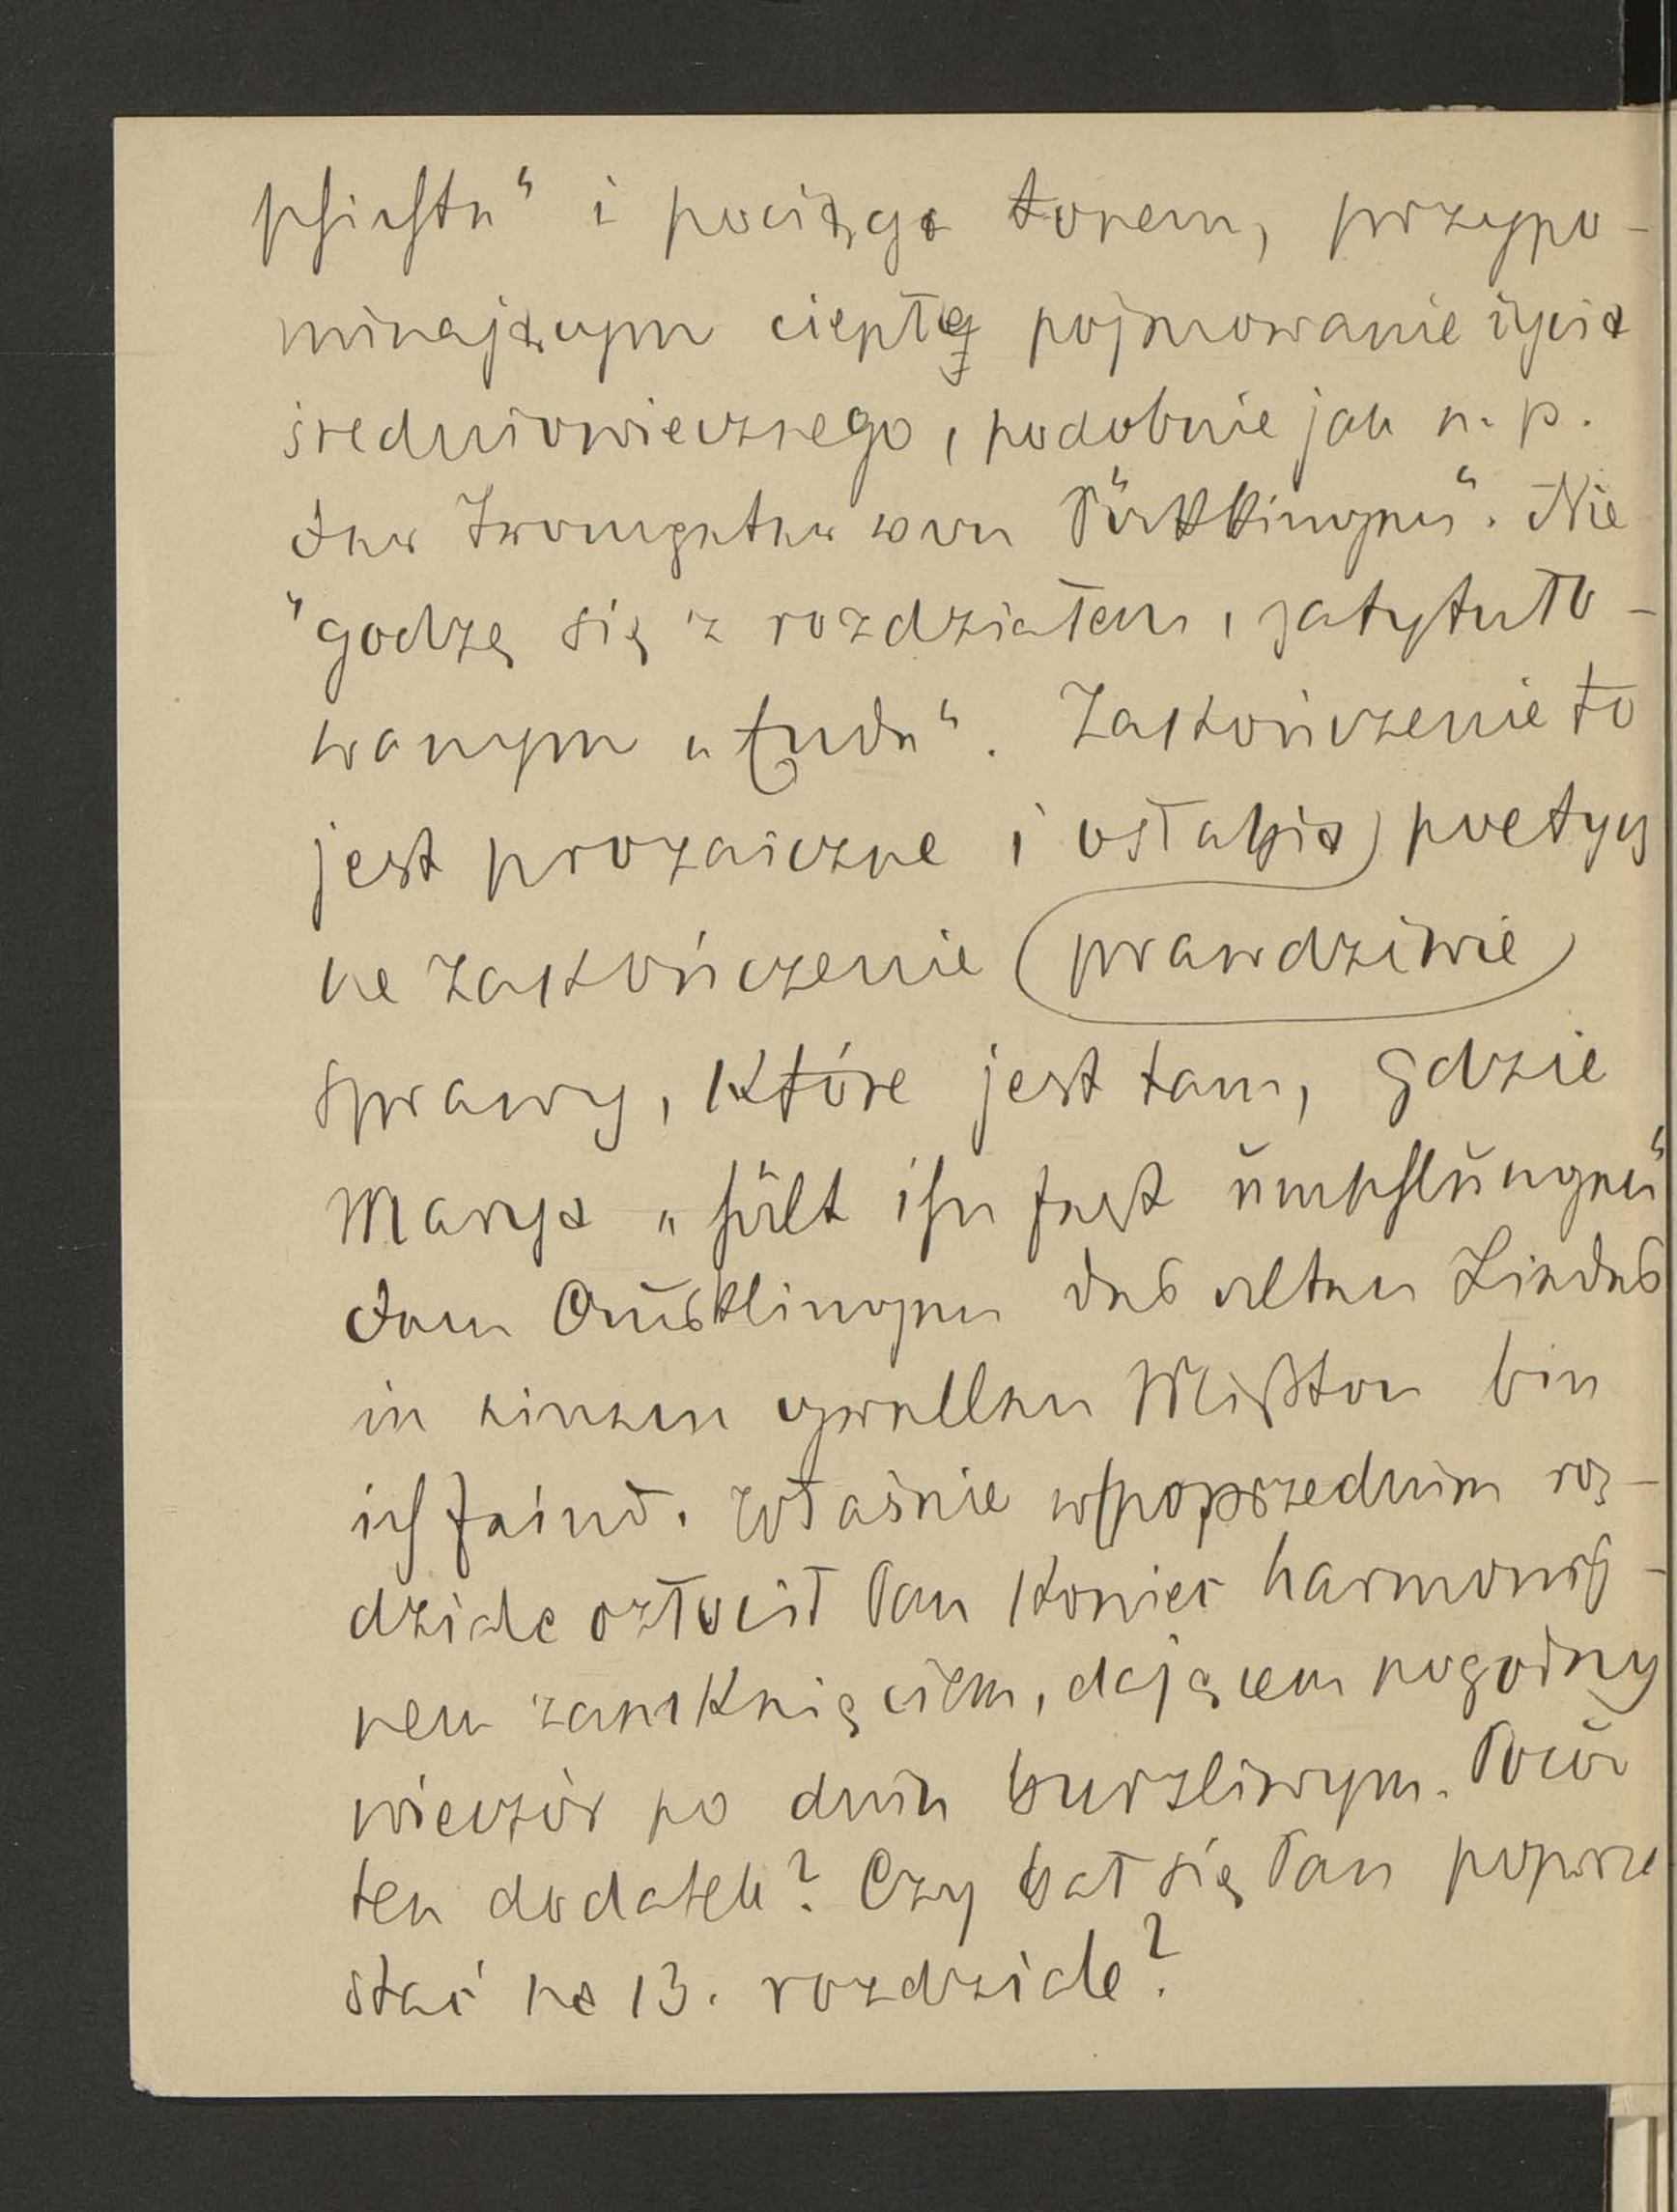 schichte" i pociąga tonem, przypo-
minającym ciepłe pojmowanie życia
średniowiecznego, podobnie jak n. p.
der Trompeter von Säckingen". Nie
godzę się z rozdziałem, zatytuło-
wanym „Ende". Zakończenie to
jest prozaiczne i osłabia poetycz
ne zakończenie (prawdziwie)
sprawy, które jest tam, gdzie
Marya „hält ihn fest umschlungen"
dem Ausklingen des alten Liedes
in einem grellen Mißton bin
ich feind. Właśnie w poprzednim roz-
dziale ozłocił Pan koniec harmonij-
nem zamknięciem, dającem pogodny
wieczór po dniu burzliwym. Pocóż
ten dodatek? Czy bał się Pan poprze
stać na 13. rozdziale?